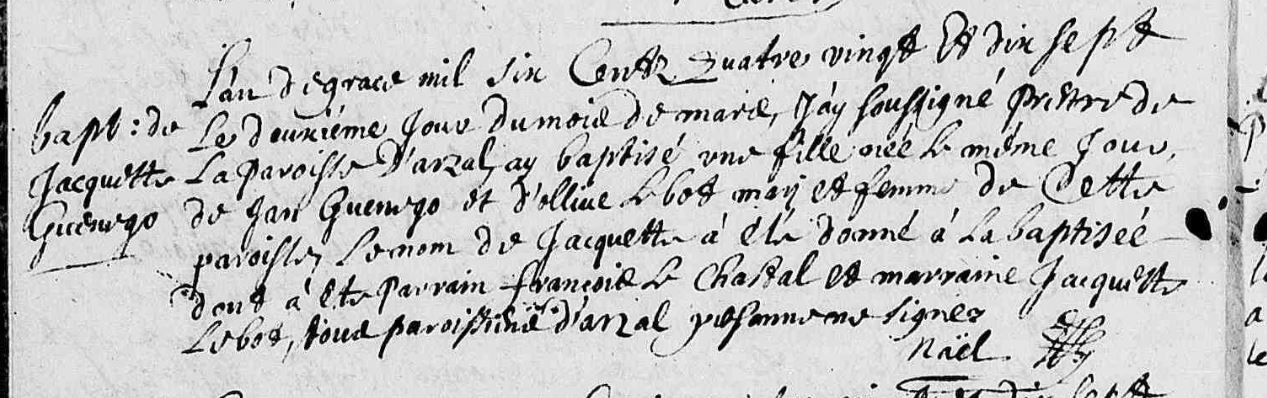 L'an de grace mil six Centz Quatre vingt Et dix sept
bapt: de
Jacquette
Guenego
Le deuxiéme Jour du mois de mars, J'ay soussigné Prêtre de
La paroisse D'arzal, ay baptisé une fille née le méme Jour,
de Jan Guenego et d'ollive Le bot mary et femme de Cette
paroisse, Le nom de Jacquette á été donné á La baptiséé
dont á été Parrain françois Le Chastal et marraine Jacquette
Le bot, tous paroissiens d'arzal personne ne signe
Naël